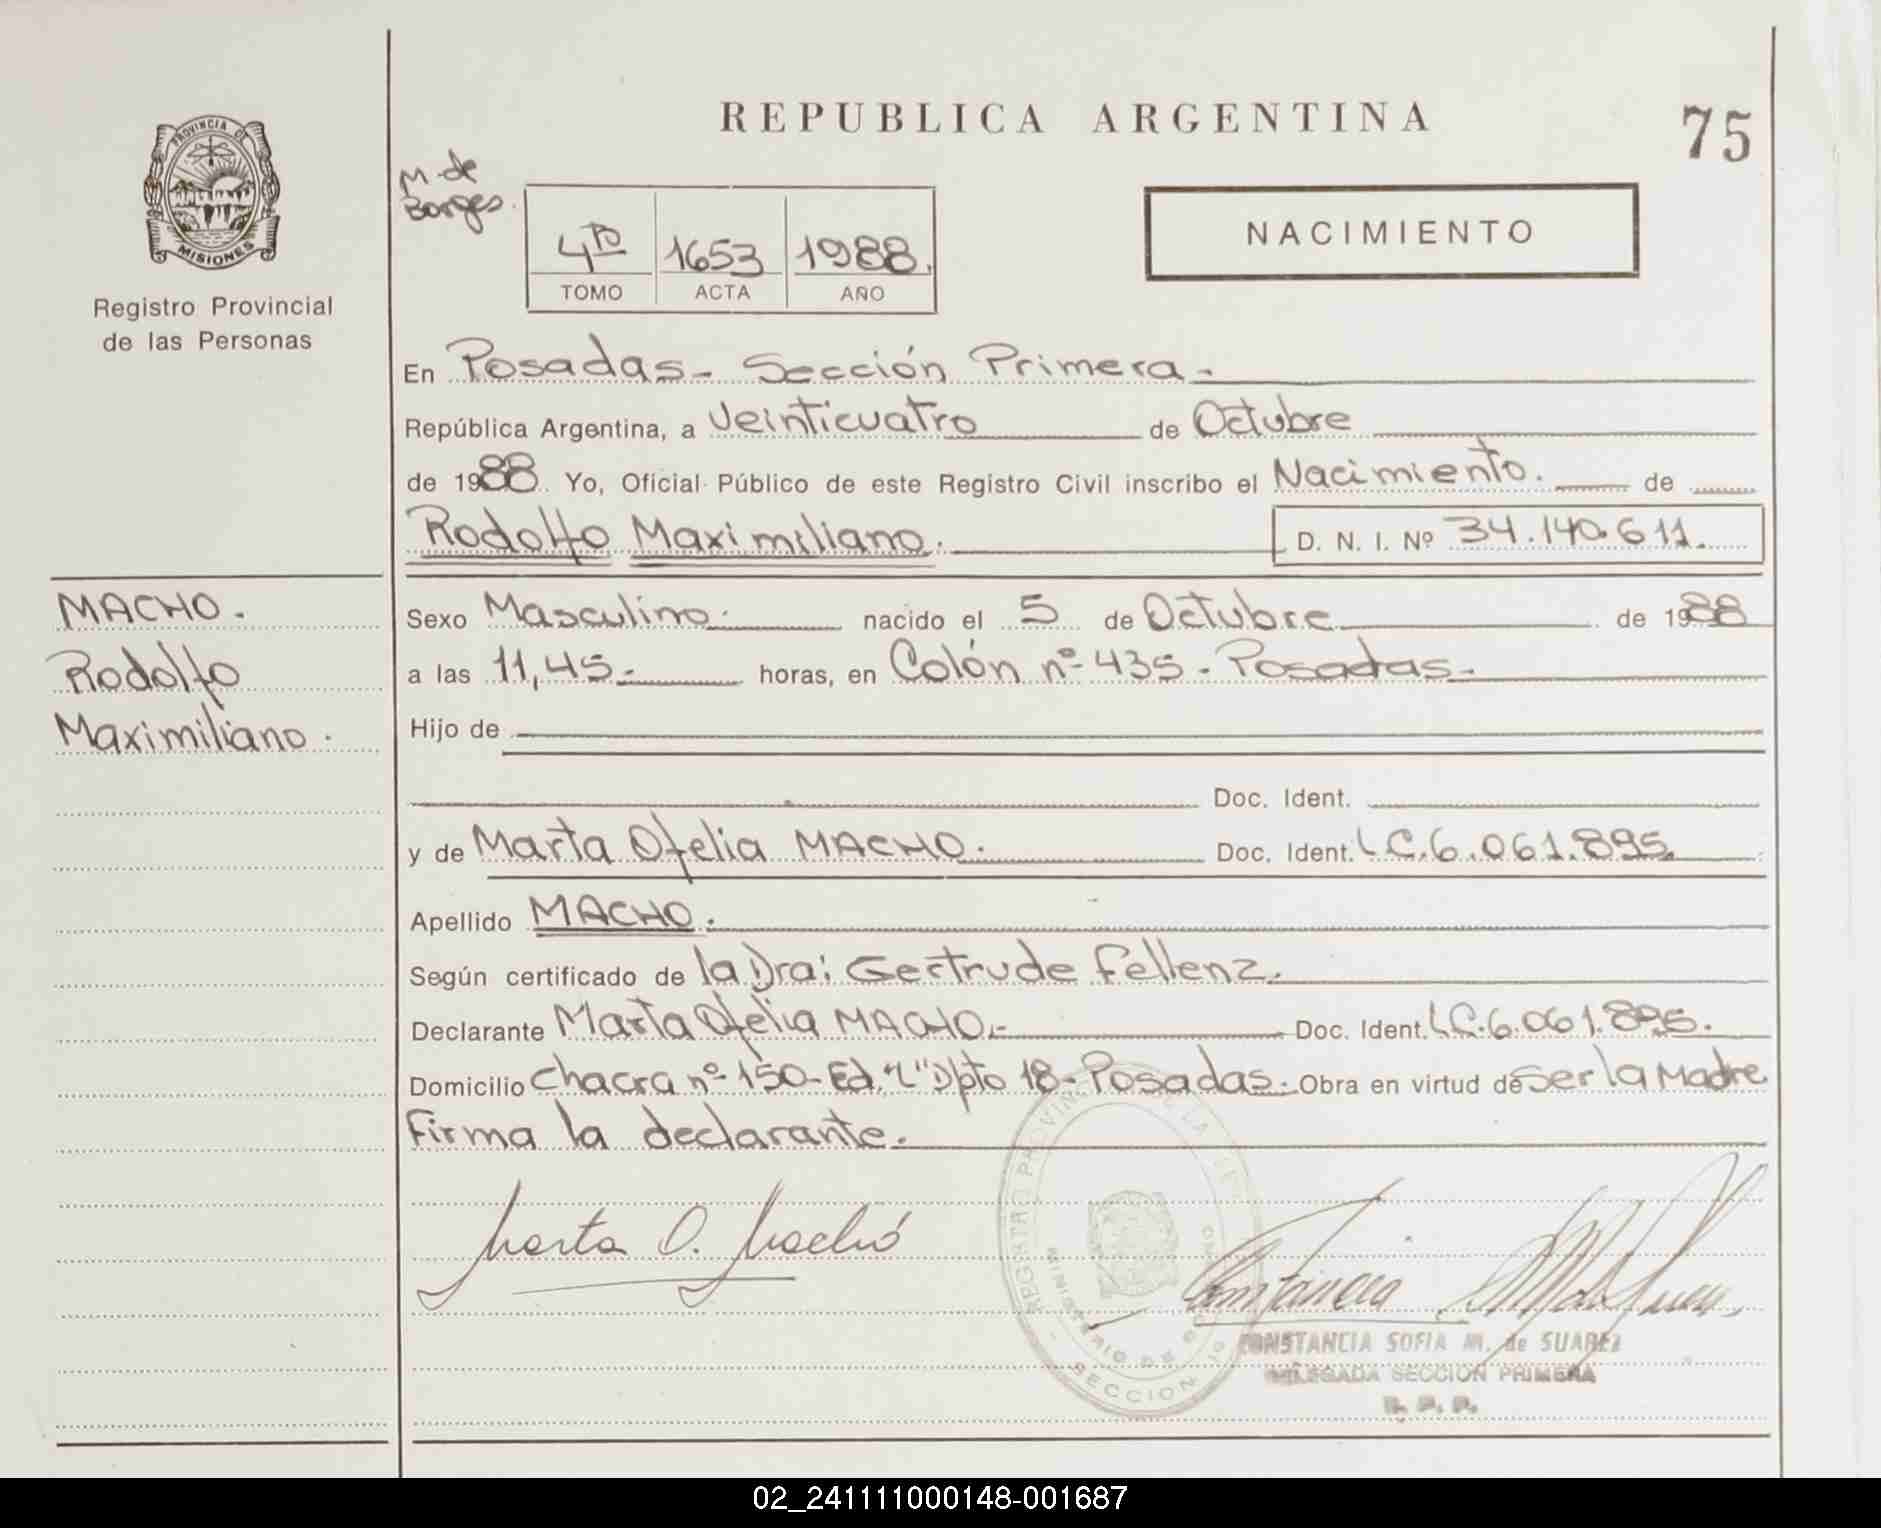 REPUBLICA ARGENTINA
75
PROVINCIA DE
MISIONES
Registro Provincial
de las Personas
M. de
Borges.
4to 1653 1988.
TOMO ACTA AÑO
NACIMIENTO
En Posadas - Sección Primera.-
República Argentina, a Veinticuatro de Octubre
de 1988. Yo, Oficial Público de este Registro Civil inscribo el Nacimiento. de
Rodolfo Maximiliano. D. N. I. Nº 34.140.611.
MACHO.
Rodolfo
Maximiliano.
Sexo Masculino. nacido el 5 de Octubre de 1988
a las 11,45.- horas, en Colón nº 435 - Posadas.-
Hijo de
Doc. Ident.
y de Marta Ofelia MACHO. Doc. Ident. L.C.6.061.895.
Apellido MACHO.
Según certificado de la Dra: Gertrude Fellenz.
Declarante Marta Ofelia MACHO.- Doc. Ident. L.C.6.061.895.
Domicilio Chacra nº 150 - Ed. "L" Dpto 18 - Posadas. Obra en virtud de Ser la Madre
Firma la declarante.
Marta O. Machó
REGISTRO PROVINCIAL DE LAS
MINISTERIO DE GOBIERNO
SECCION 1º
CONSTANCIA SOFIA M. de SUAREZ
DELEGADA SECCION PRIMERA
R. P. P.
02_241111000148-001687